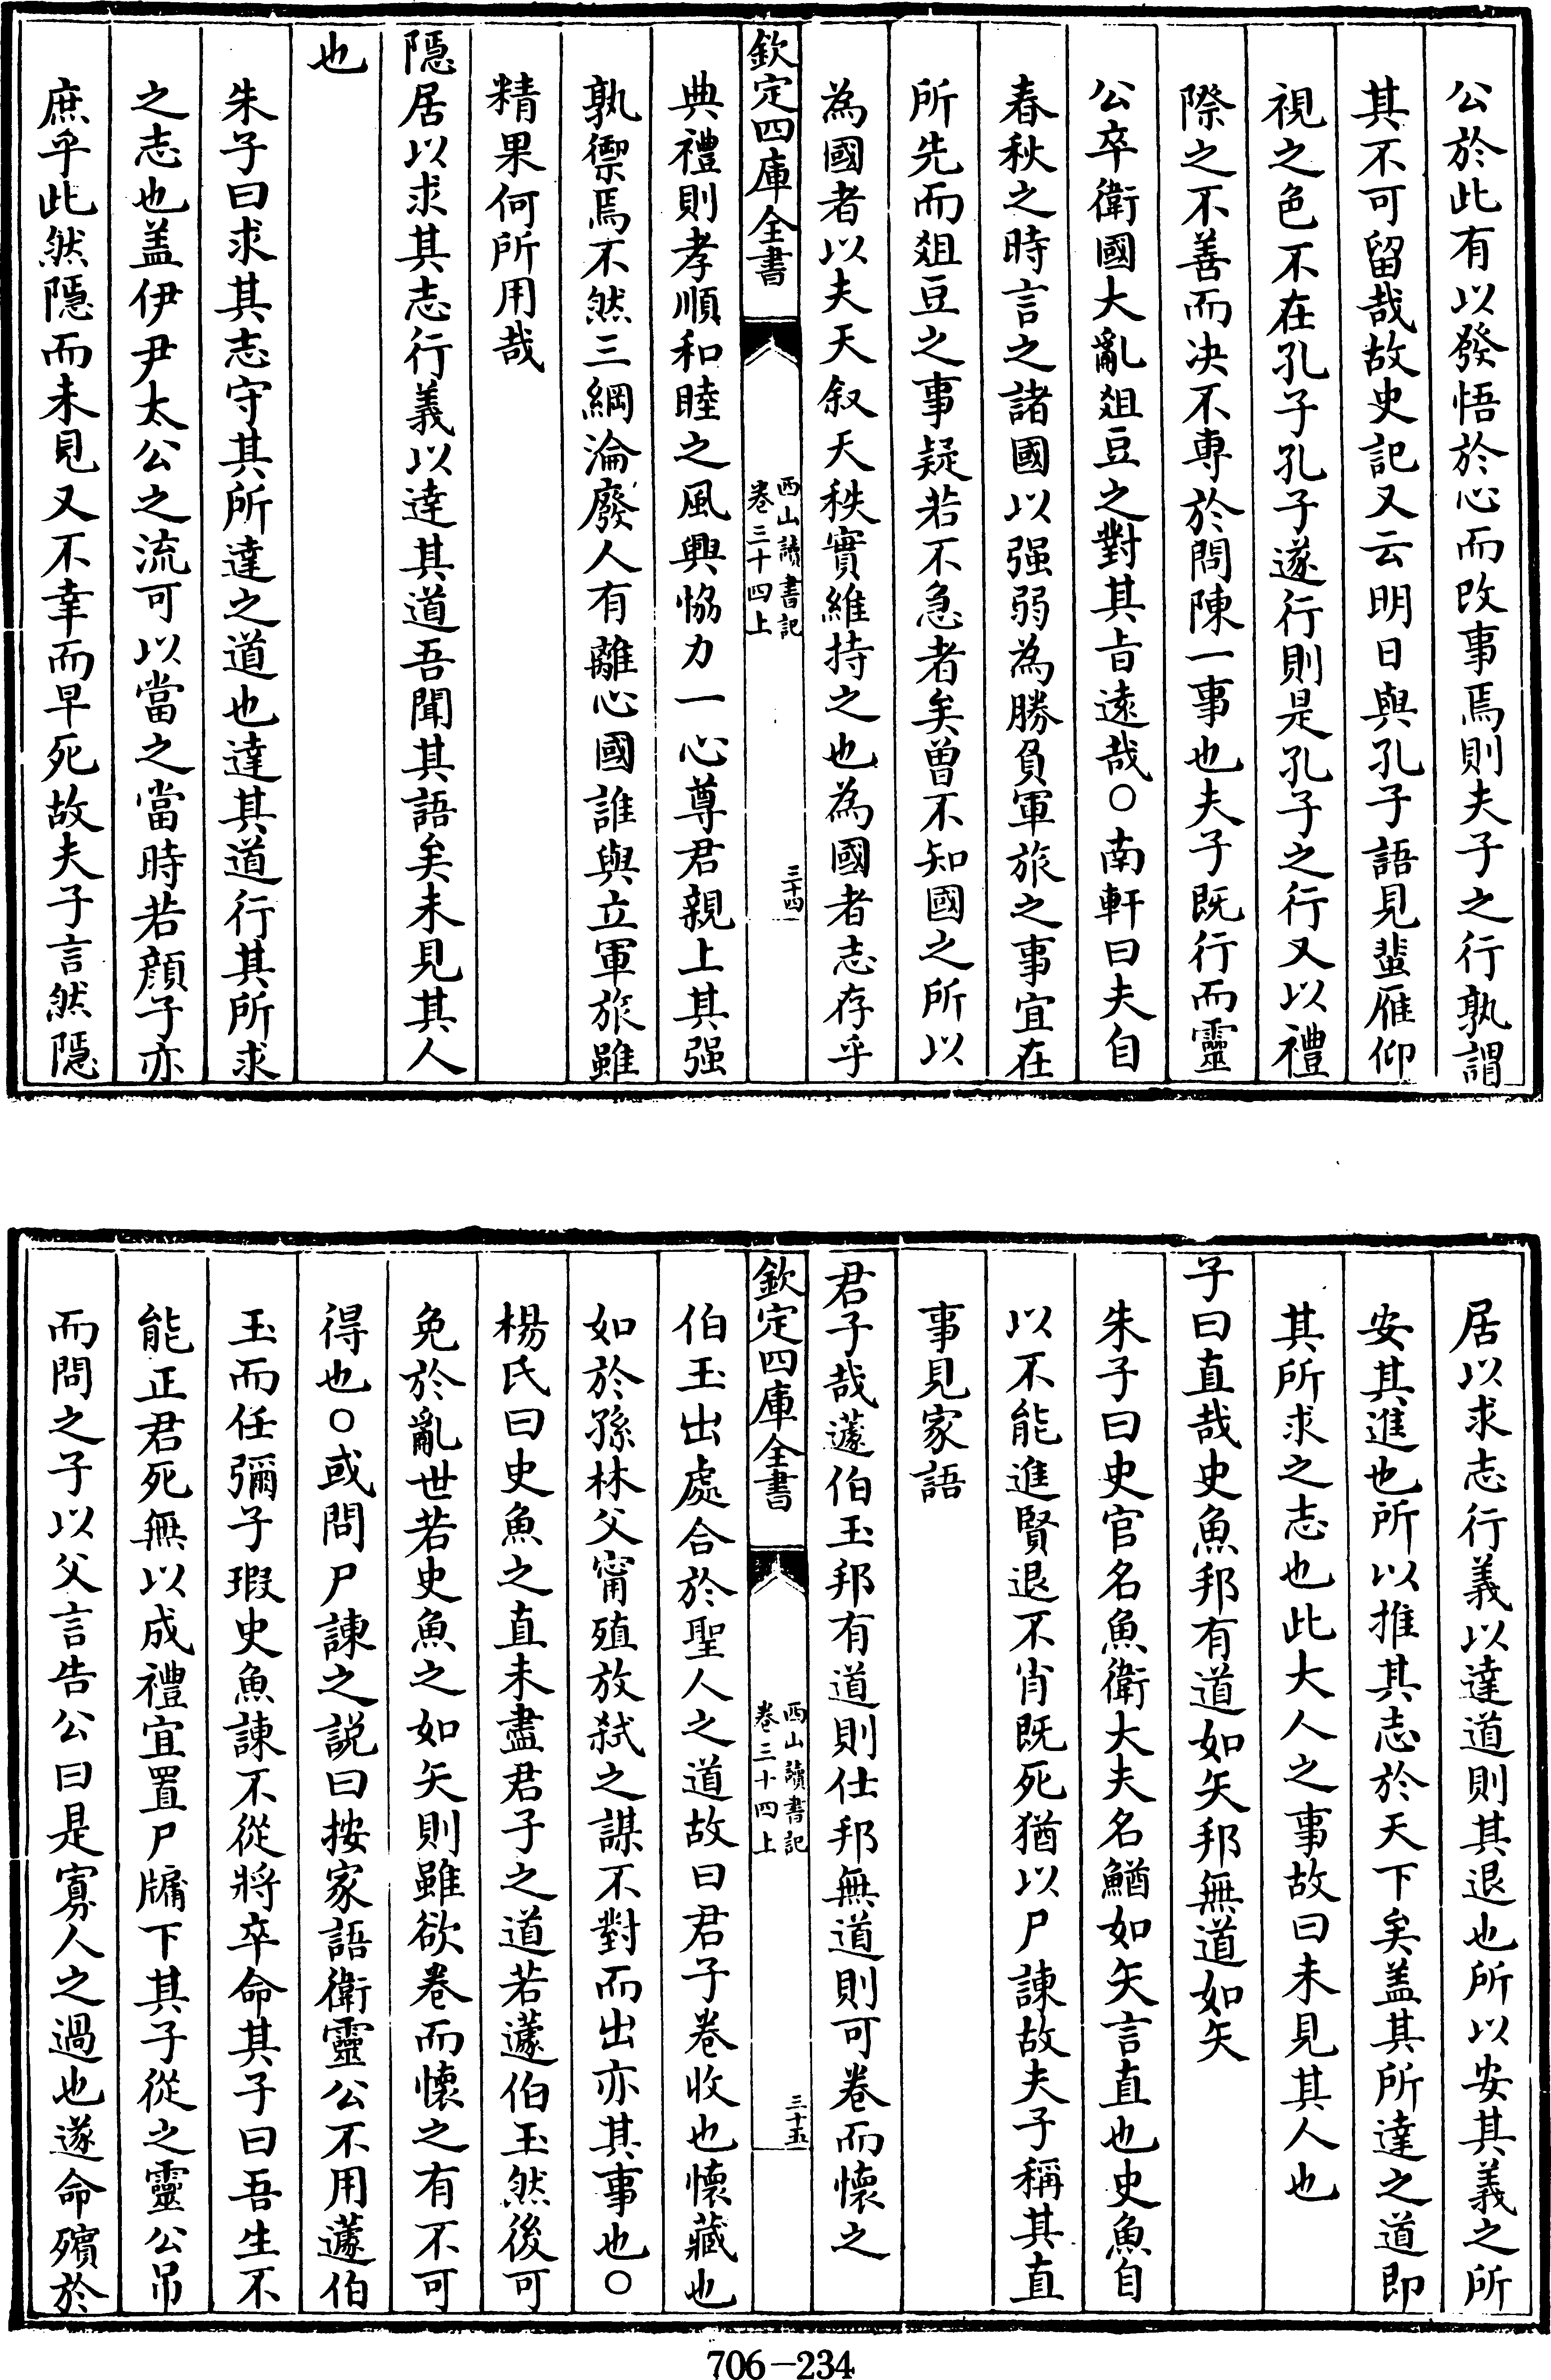 公於此有以發悟於心而改事焉則夫子之行孰謂
其不可留哉故史記又云明日與孔子語見蜚雁仰
視之色不在孔子孔子遂行則是孔子之行又以禮
際之不善而决不専於問陳一事也夫子既行而靈
公卒衛國大亂爼豆之對其㫖遠哉○南軒曰夫自
春秋之時言之諸國以强弱為勝負軍旅之事宜在
所先而爼豆之事疑若不急者矣曽不知國之所以
為國者以夫天叙天秩實維持之也為國者志存乎
欽定四庫全書
西山讀書記
卷三十四上
三十四
典禮則孝順和睦之風興恊力一心尊君親上其强
孰禦焉不然三綱淪廢人有離心國誰與立軍旅雖
精果何所用哉
隱居以求其志行義以達其道吾聞其語矣未見其人
也
朱子曰求其志守其所達之道也達其道行其所求
之志也盖伊尹太公之流可以當之當時若顔子亦
庶乎此然隱而未見又不幸而早死故夫子言然隱
居以求志行義以達道則其退也所以安其義之所
安其進也所以推其志於天下矣盖其所達之道即
其所求之志也此大人之事故曰未見其人也
子曰直哉史魚邦有道如矢邦無道如矢
朱子曰史官名魚衛大夫名鰌如矢言直也史魚自
以不能進賢退不肖既死猶以尸諫故夫子稱其直
事見家語
君子哉蘧伯玉邦有道則仕邦無道則可卷而懷之
欽定四庫全書
西山讀書記
卷三十四上
三十五
伯玉出處合於聖人之道故曰君子卷收也懷藏也
如於孫林父甯殖放弑之謀不對而出亦其事也○
楊氏曰史魚之直未盡君子之道若蘧伯玉然後可
免於亂世若史魚之如矢則雖欲卷而懷之有不可
得也○或問尸諫之説曰按家語衛靈公不用蘧伯
玉而任彌子瑕史魚諫不從將卒命其子曰吾生不
能正君死無以成禮宜置尸牖下其子從之靈公吊
而問之子以父言告公曰是寡人之過也遂命殯於
706-234